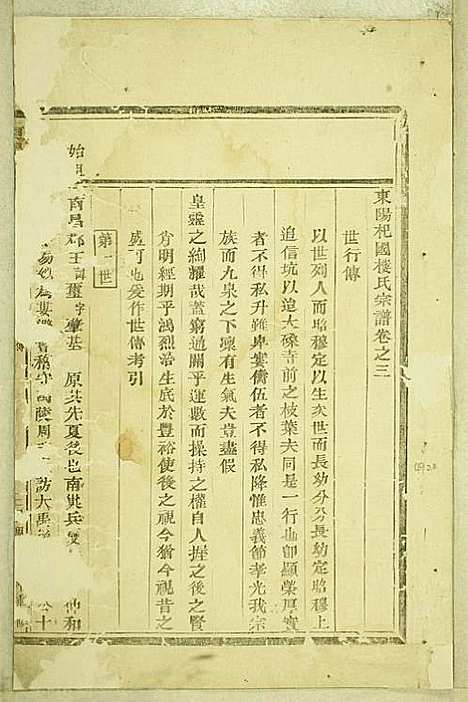 東陽杞國樓氏宗譜卷之三
世行傳
以世列人而昭穆定以生次世而長幼分分長幼定昭穆上
追信坑以迨大磉寺前之枝葉夫同是一行也卽顯榮厚實
者不得私升雖卑寠儔伍者不得私降惟忠義節孝光我宗
族而九泉之下凜有生氣夫豈盡假
皇靈之絢耀哉蓋窮通關乎運數而操持之權自人握之後之賢
肯明經期乎鴻烈治生底於豐裕使後之視今猶今視昔之
盛可也爰作世傳考引
第一世
始 南 郡王 字 基 原 其先夏後也南
周 訪大禹
仙和
公十